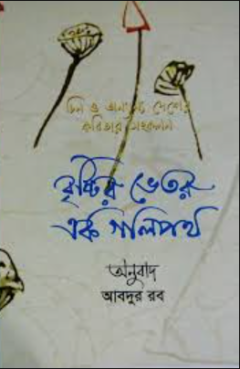 চিন ও অন্যান্য দেশের
কবিতার সংকলন
বৃষ্টির ভেতর
এক গলিপথ
অনুবাদ
আবদুর রব